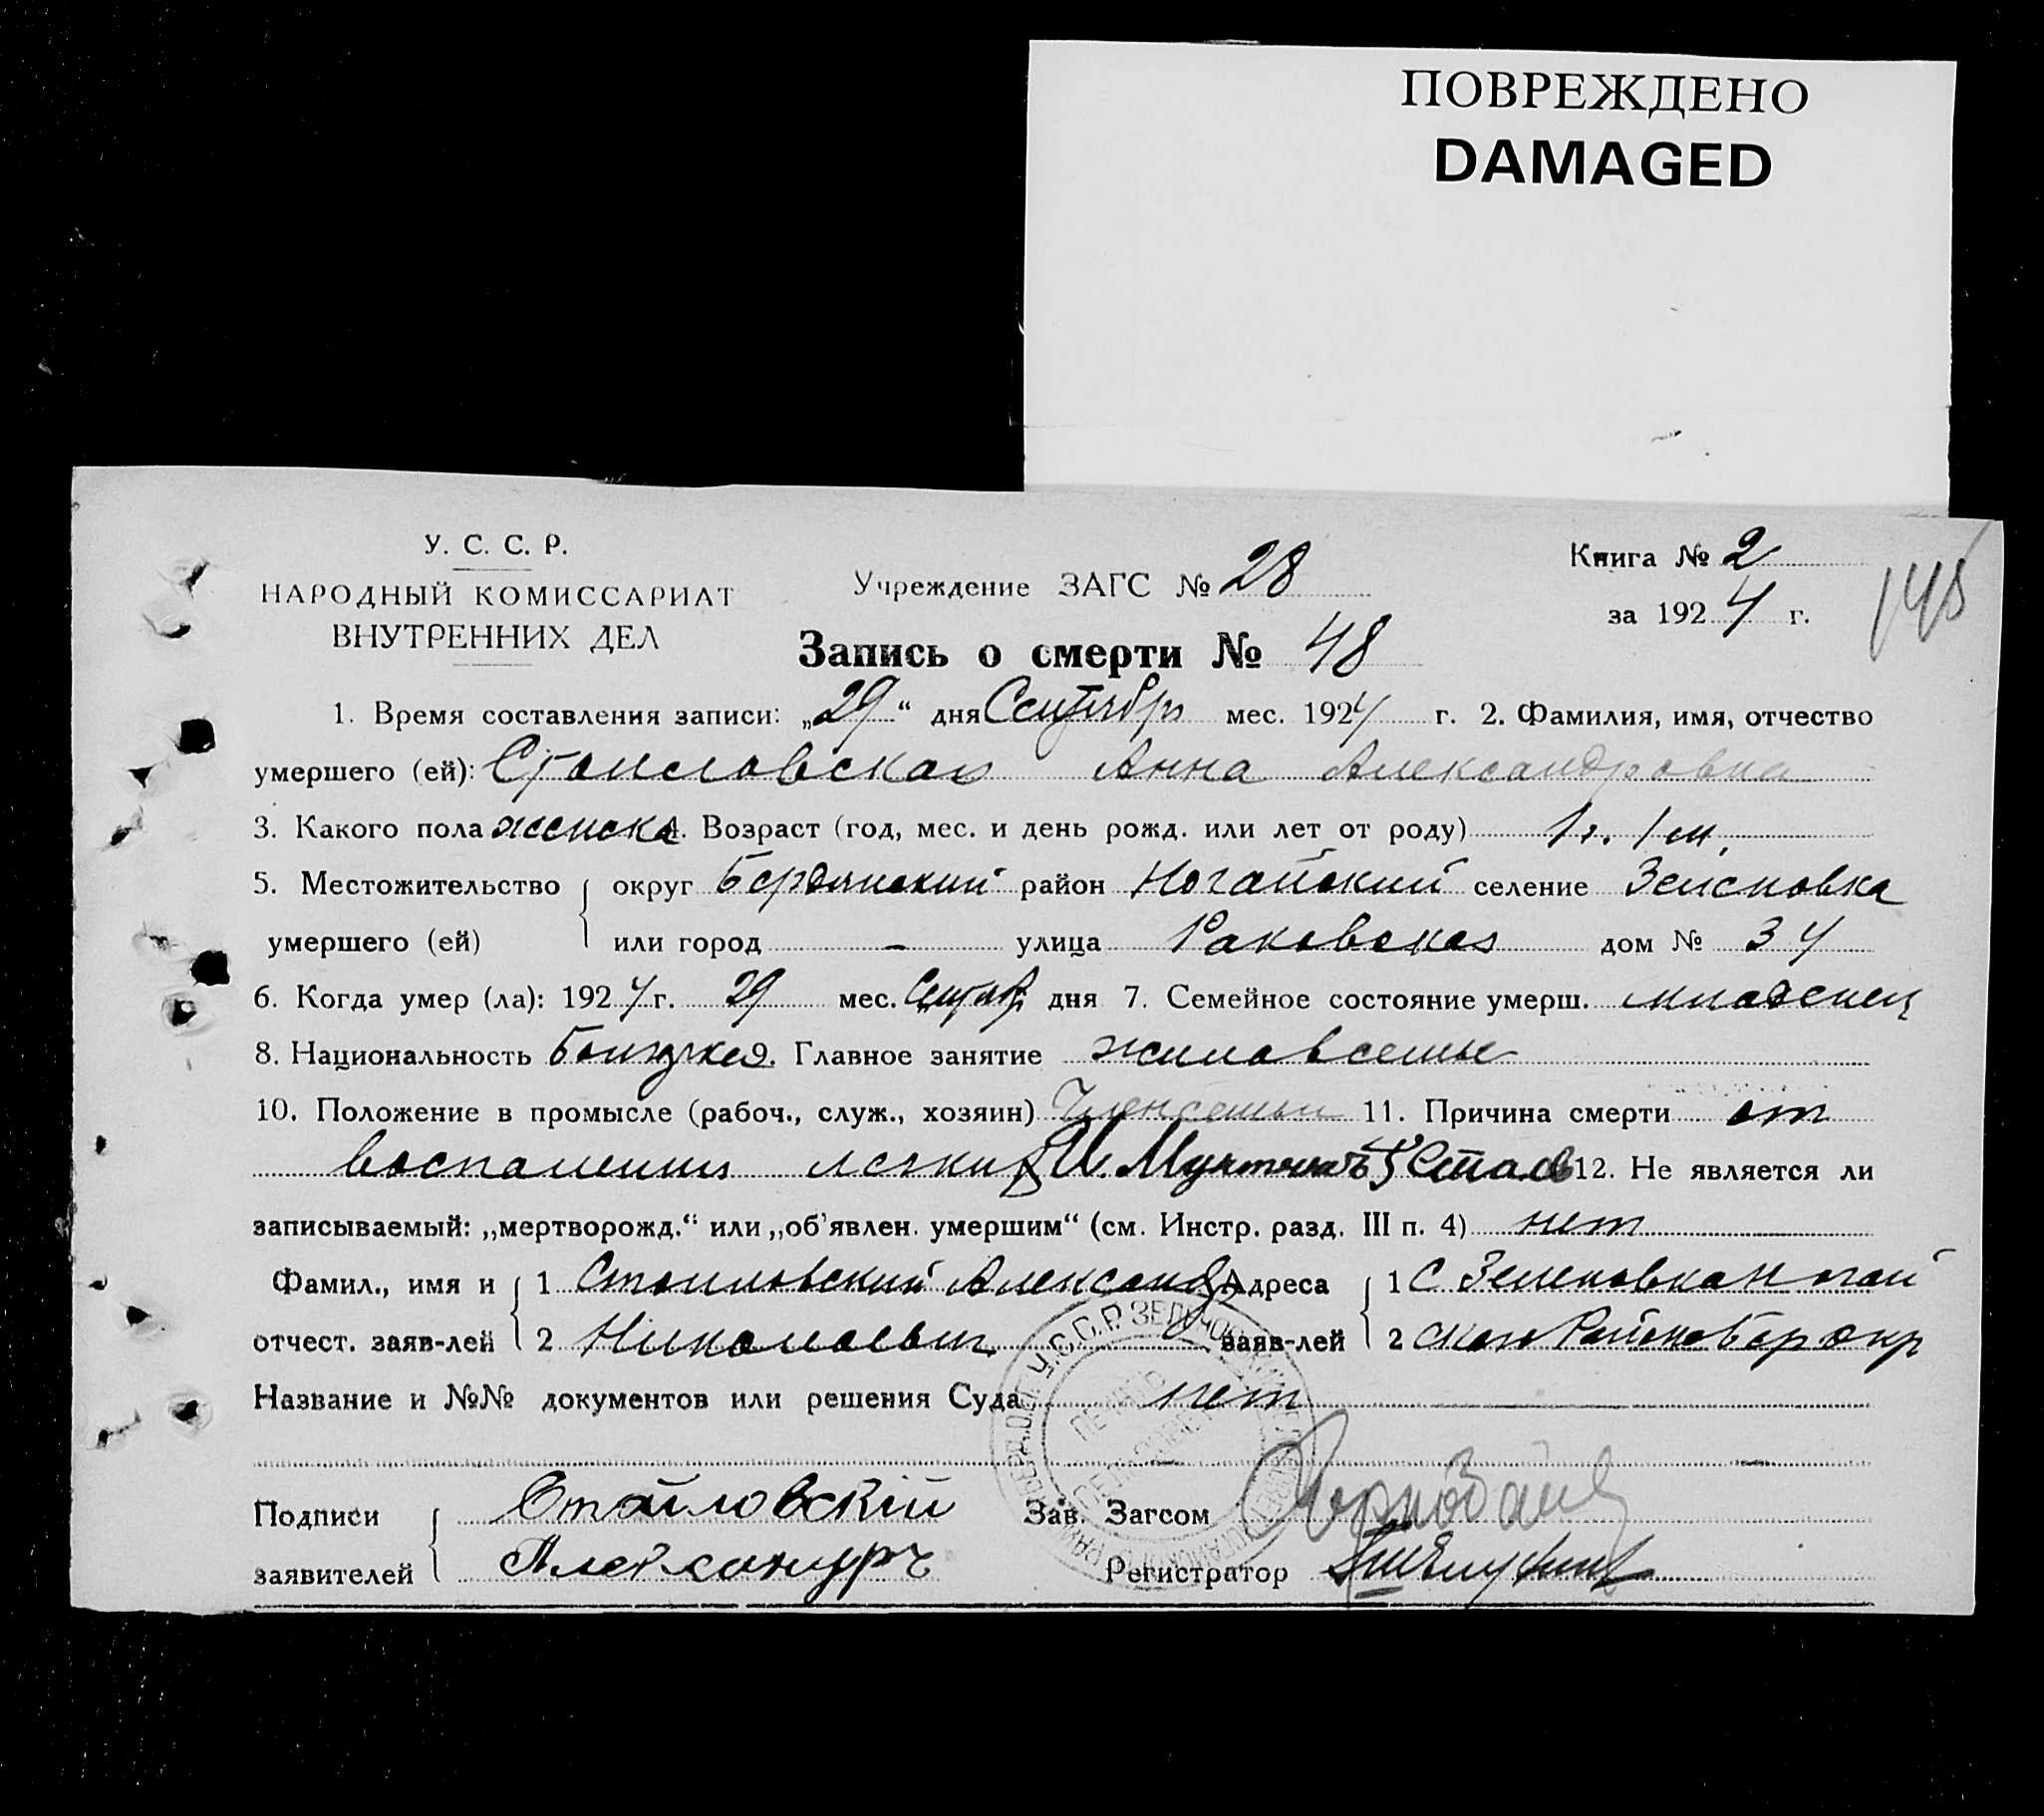 ПОВРЕЖДЕНО
DAMAGED
У. С. С. Р.
НАРОДНЫЙ КОМИССАРИАТ
ВНУТРЕННИХ ДЕЛ
Учреждение ЗАГС № 28
Книга № 2
за 1924 г.
148
Запись о смерти № 48
1. Время составления записи: „29“ дня Сентябр мес. 1924 г. 2. Фамилия, имя, отчество
умершего (ей): Стоиловская Анна Александровна
3. Какого пола женска 4. Возраст (год, мес. и день рожд. или лет от роду) 1 г. 1 м.
5. Местожительство округ Бердянский район Ногайский селение Зеленовка
умершего (ей) или город - улица Раковская дом № 34
6. Когда умер (ла): 1924 г. 29 мес. Сентяб. дня 7. Семейное состояние умерш. младенец
8. Национальность 9. Главное занятие
10. Положение в промысле (рабоч., служ., хозяин) Член семьи 11. Причина смерти от
воспаления легких 12. Не является ли
записываемый: „мертворожд.“ или „об'явлен. умершим“ (см. Инстр. разд. III п. 4) нет
Фамил., имя и 1 Стоиловский Александр Адреса 1 С Зеленовка Ногай
отчест. заяв-лей 2 Николаевич заяв-лей 2 ского Района Бер окр
Название и №№ документов или решения Суда нет
Подписи Стойловскій Зав. Загсом
заявителей Александръ Регистратор